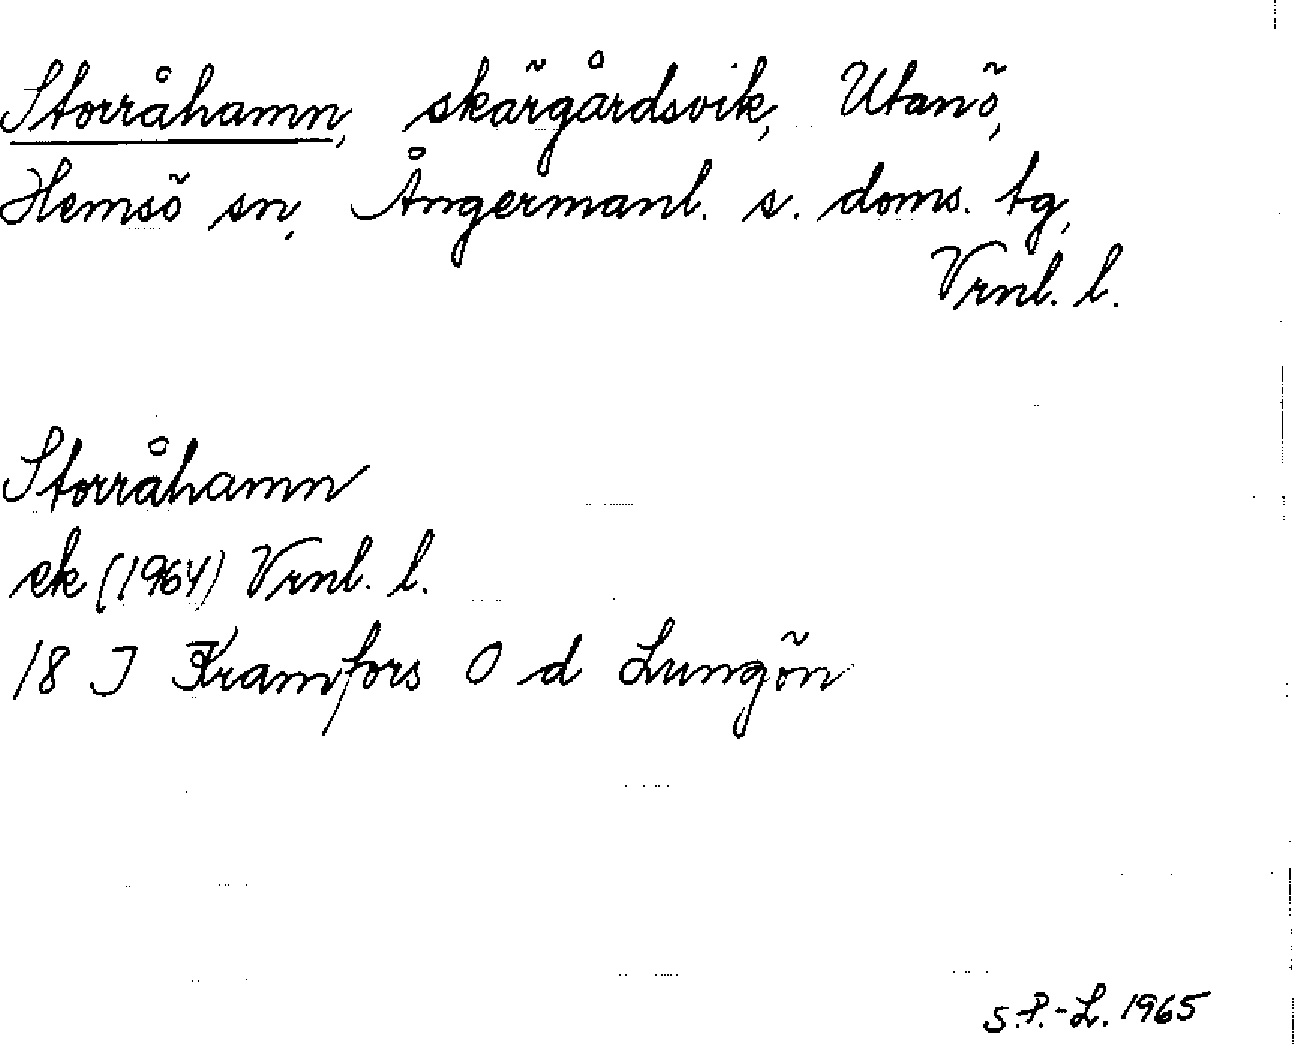 Storråhamn, skärgårdsvik, Utanö,
Hemsö sn, Ångermanl. s. doms. tg,
Vrnl. l.
Storråhamn
ek (1964) Vrnl. l.
18 J Kramfors O d Lungön
S.P.-L. 1965